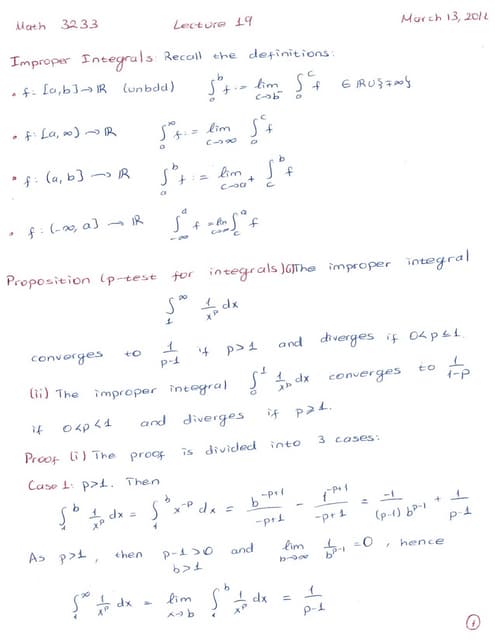 Math 3233 Lecture 19 March 13, 201
Improper Integrals: Recall the definitions:
• f: [a,b] → ℝ (unbdd) ∫_a^b f := lim_{c→b^-} ∫_a^c f ∈ ℝ∪{±∞}
• f: [a,∞) → ℝ ∫_a^∞ f := lim_{c→∞} ∫_a^c f
• f: (a,b] → ℝ ∫_a^b f := lim_{c→a+} ∫_c^b f
• f: (-∞,a] → ℝ ∫_{-∞}^a f = lim ∫_c^a f
Proposition (p-test for integrals) (i) The improper integral
∫_1^∞ 1/x^p dx
converges to 1/(p-1) if p>1 and diverges if 0<p≤1.
(ii) The improper integral ∫_0^1 1/x^p dx converges to 1/(1-p)
if 0<p<1 and diverges if p≥1.
Proof (i) The proof is divided into 3 cases:
Case 1: p>1. Then
∫_1^b 1/x^p dx = ∫_1^b x^{-p} dx = b^{-p+1}/(-p+1) - 1^{-p+1}/(-p+1) = -1/((p-1) b^{p-1}) + 1/(p-1)
As p>1, then p-1>0 and lim_{b→∞} 1/b^{p-1} = 0, hence
b>1
∫_1^∞ 1/x^p dx = lim_{x→b} ∫_1^b 1/x^p dx = 1/(p-1)
①